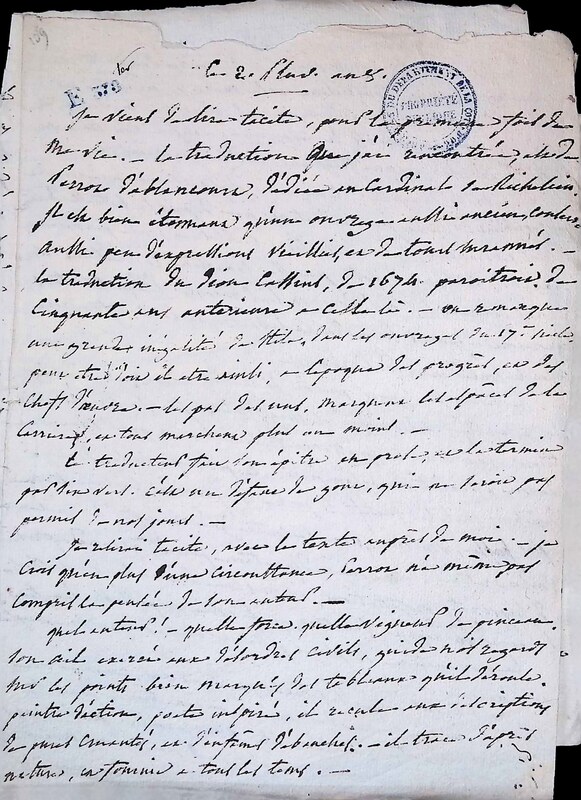 159
E 379
le 2. Pluv. an 5.
DU DÉPARTEMENT DE LA
PROPRIÉTÉ
PUBLIQUE
Je viens de lire tacite, pour la premiere fois de
ma vie. — la traduction que j'ai rencontrée, est de
Perrot d'ablancourt, dédiée au Cardinal de Richelieu.
Il est bien étonnant qu'un ouvrage aussi ancien, contienne
aussi peu d'expressions vieillies, et de tours surannés. —
la traduction du Dion Cassius, de 1674. paroitroit de
cinquante ans anterieure a celle la. — on remarque
une grande inegalité de stile, dans les ouvrages du 17e siecle
peut etre doit il etre ainsi, a l'epoque des progrès, et des
chefs d'œuvre. — les pas des uns, marquent les espaces de la
carriere, et tous marchent plus ou moins. —
le traducteur fait son épitre en prose, et la termine
par six vers. c'est un défaut de gout, qui ne seroit pas
permis de nos jours. —
Je relirai tacite, avec le texte auprès de moi. — je
crois qu'en plus d'une circonstance, Perrot n'a même pas
compris la pensée de son auteur. —
quel auteur! — quelle force, quelle vigueur de pinceau.
son œil exercé aux désordres civils, guide nos regards
sur les points bien marqués des tableaux qu'il déroule.
peintre d'action, poete inspiré, il recule aux descriptions
de pures cruautés, et d'infames débauches. — il trace d'après
nature, et fournit a tous les tems. —